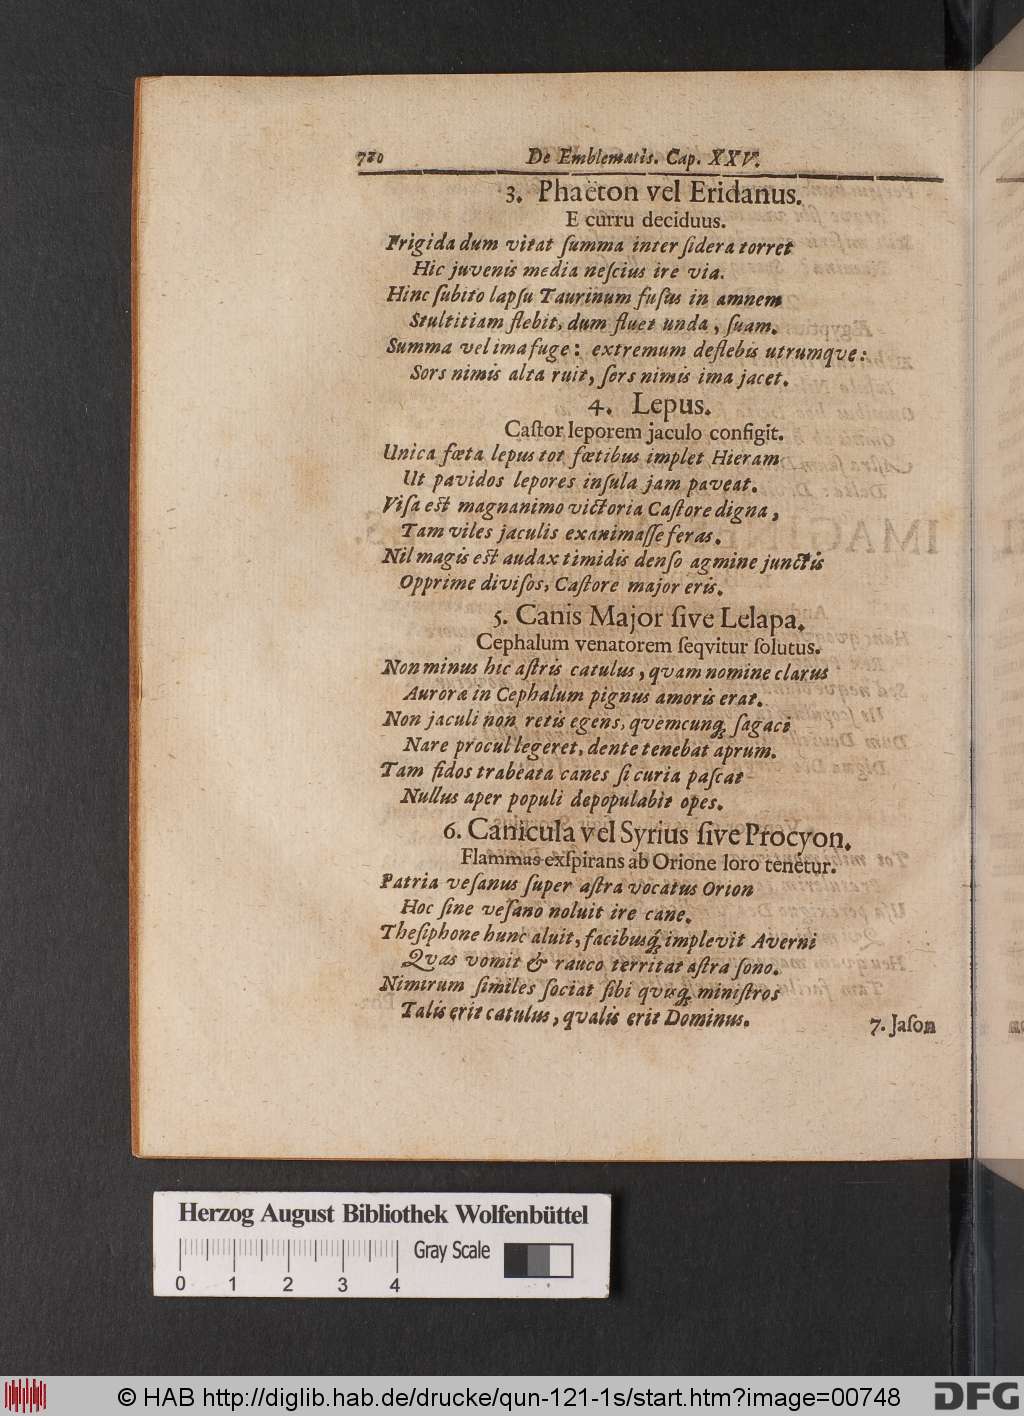 720 De Emblematis. Cap. XXV.
3. Phaëton vel Eridanus.
E curru deciduus.
Frigida dum vitat ſumma inter ſidera torret
Hic juvenis media neſcius ire via.
Hinc ſubito lapſu Taurinum fuſus in amnem
Stultitiam flebit, dum fluet unda, ſuam.
Summa vel ima fuge: extremum deflebis utrumque:
Sors nimis alta ruit, ſors nimis ima jacet.
4. Lepus.
Caſtor leporem jaculo configit.
Unica fœta lepus tot fœtibus implet Hieram
Ut pavidos lepores inſula jam paveat.
Viſa est magnanimo victoria Caſtore digna,
Tam viles jaculis exanimaſſe feras.
Nil magis est audax timidis denſo agmine junctis
Opprime diviſos, Caſtore major eris.
5. Canis Major ſive Lelapa.
Cephalum venatorem ſeqvitur ſolutus.
Non minus hic aſtris catulus, quam nomine clarus
Auroræ in Cephalum pignus amoris erat.
Non jaculi non retis egens, quemcunq; ſagaci
Nare procul legeret, dente tenebat aprum.
Tam fidos trabeata canes ſi curia paſcat
Nullus aper populi depopulabit opes.
6. Canicula vel Syrius ſive Procyon.
Flammas exſpirans ab Orione loro tenetur.
Patria veſanus ſuper aſtra vocatus Orion
Hoc ſine veſano noluit ire cane.
Theſiphone hunc aluit, facibusq; implevit Averni
Quas vomit & rauco territat aſtra ſono.
Nimirum ſimiles ſociat ſibi quisq; miniſtros
Talis erit catulus, qualis erit Dominus.
7. Jaſon
Herzog August Bibliothek Wolfenbüttel
Gray Scale
0 1 2 3 4
© HAB http://diglib.hab.de/drucke/qun-121-1s/start.htm?image=00748
DFG